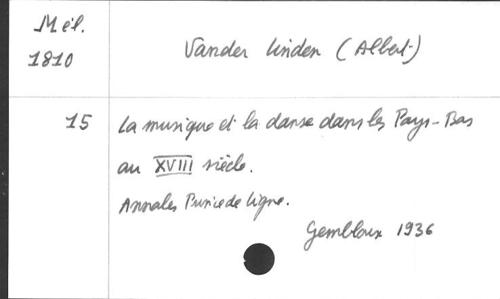 Mél.
1810
Vander Linden (Albert)
15
La musique et la danse dans les Pays-Bas
au XVIII siècle.
Annales Prince de Ligne.
Gembloux 1936